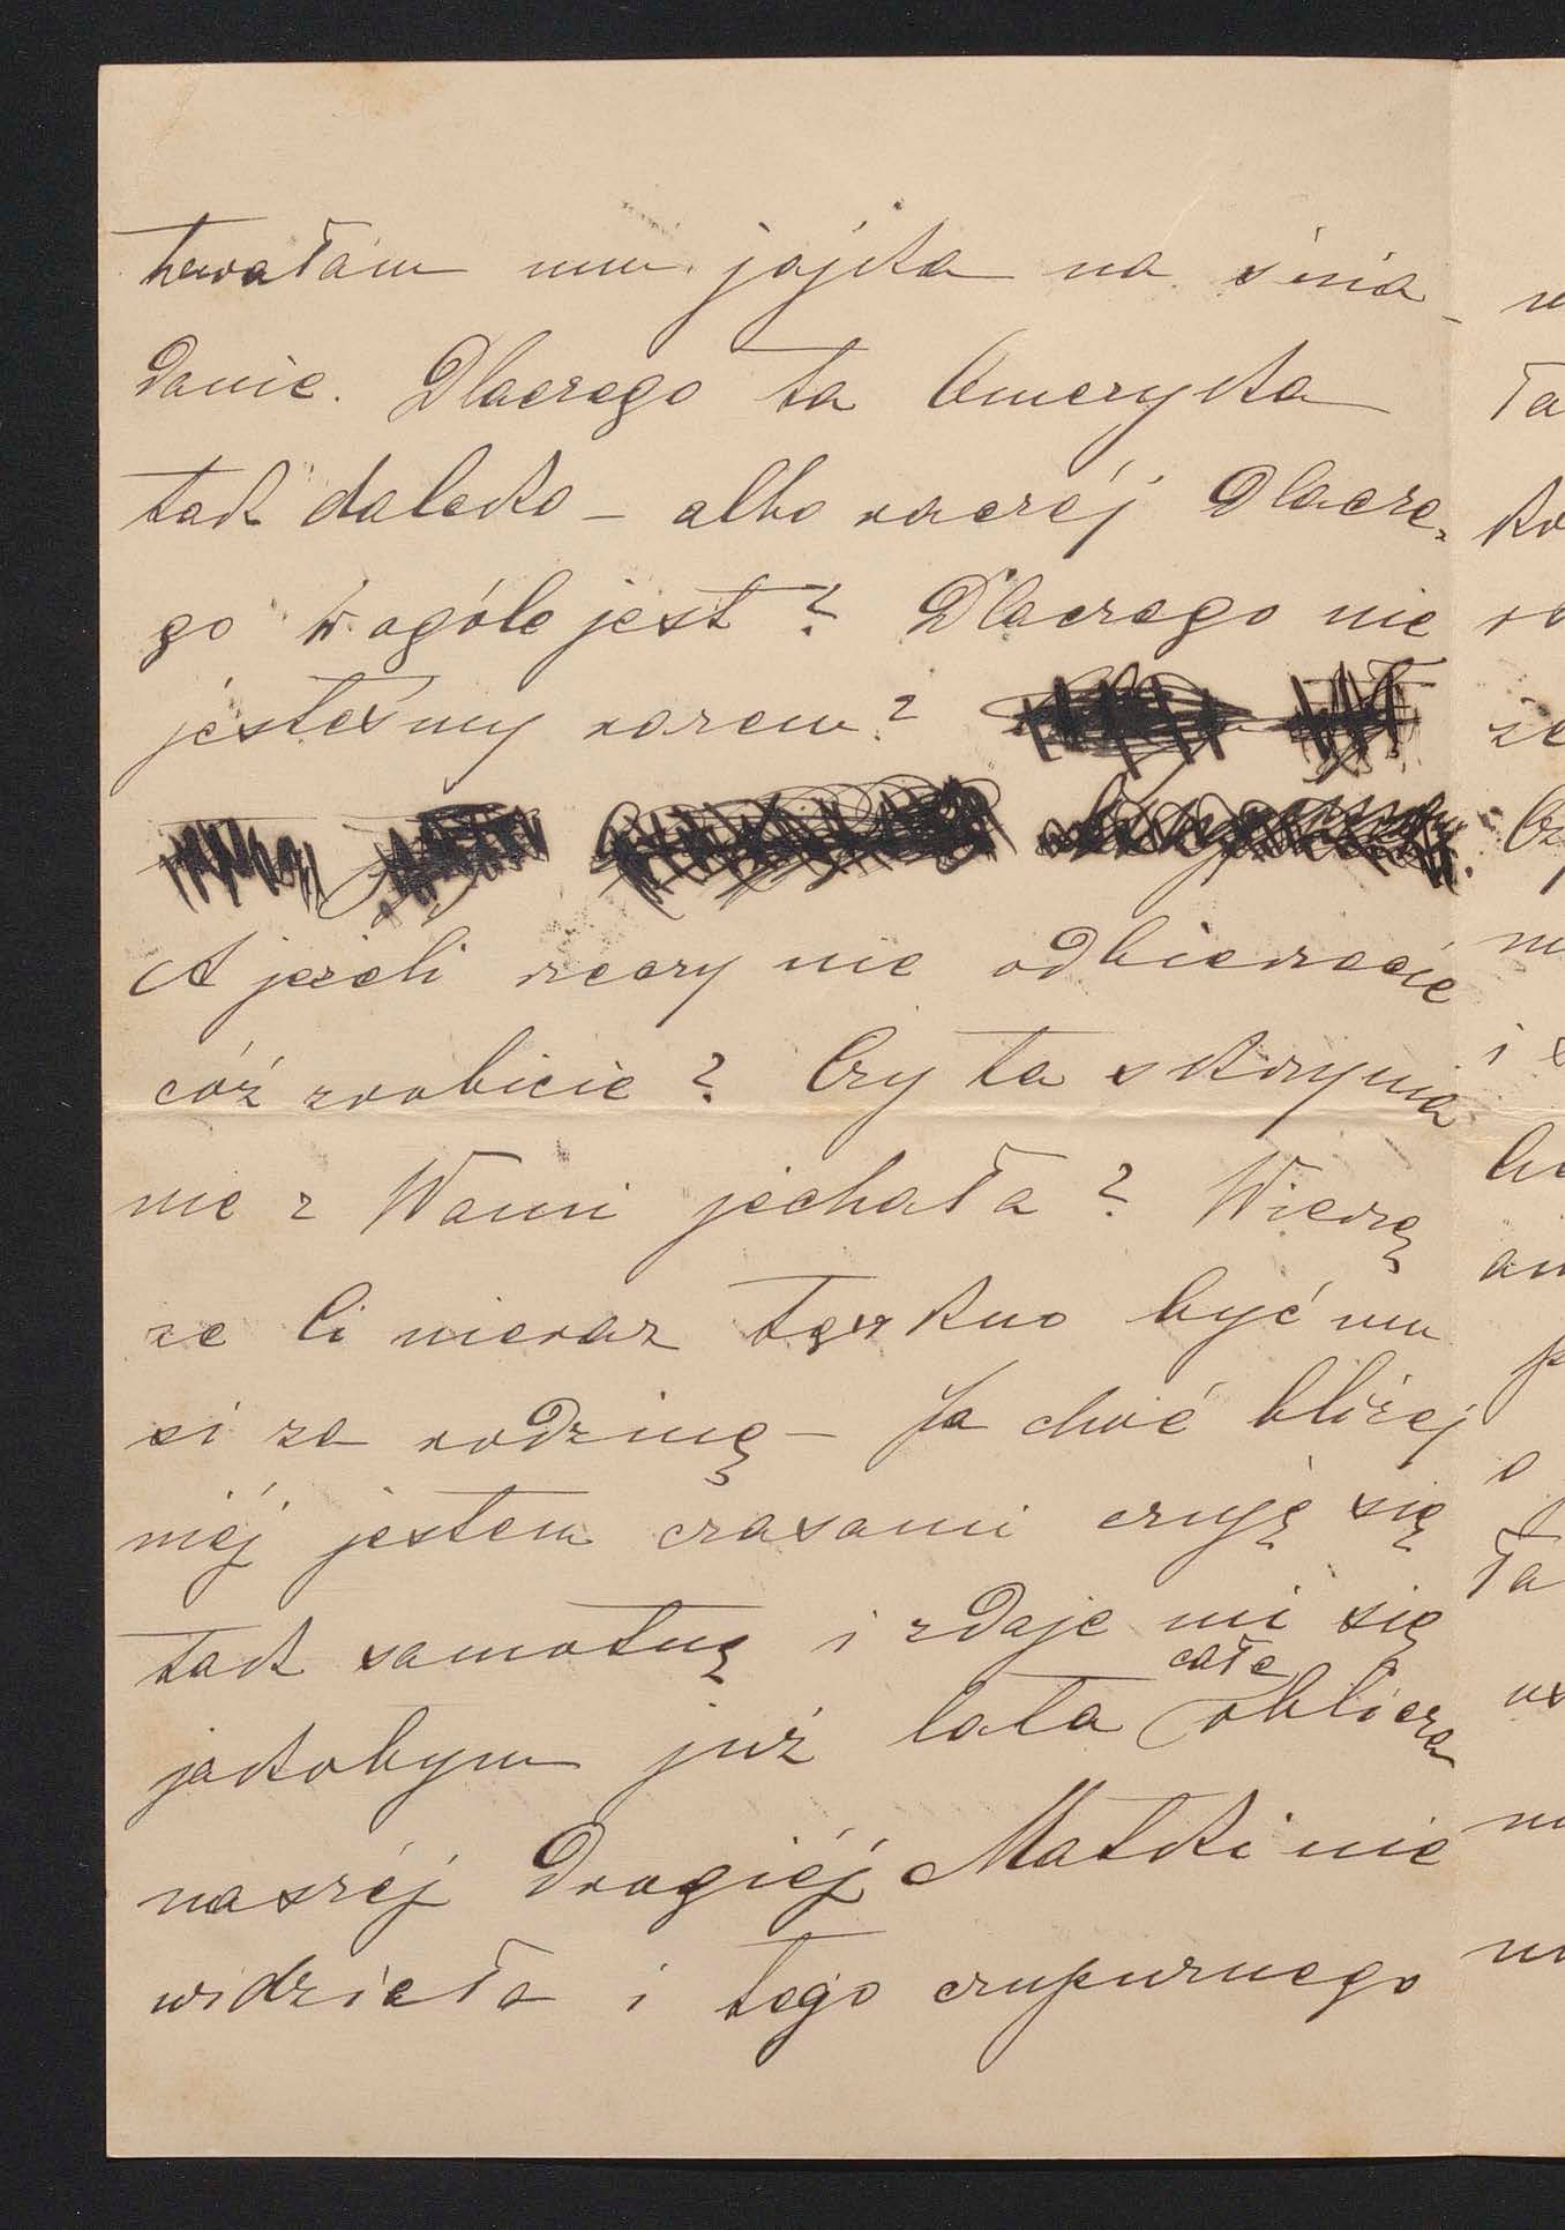 towałam mu jajka na śnia-
danie. Dlaczego ta Ameryka
tak daleko – albo raczéj dlacze-
go w ogóle jest? Dlaczego nie
jesteśmy razem?
A jeżeli rzeczy nie odbierzecie
cóż zrobicie? Czy ta skrzynia
nie z Wami jechała? Wierzę
że Ci nieraz tęskno być mu
si za rodziną – Ja choć bliżej
niéj jestem czasami czuję się
tak samotną i zdaje mi się
jakobym już lata całe oblicza
naszéj drogiéj Matki nie
widziała i tego czupurnego